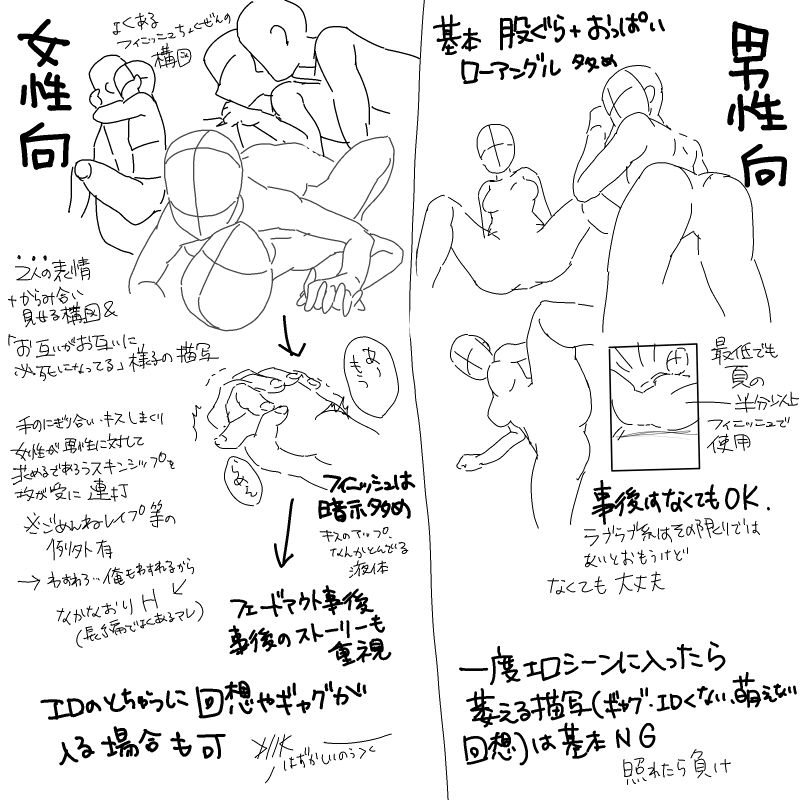 女性向
よくある
フィニッシュちょくぜんの
構図
2人の表情
+からみ合い
見せる構図&
「お互いがお互いに
必死になってる」様子の描写
手のにぎり合い・キスしまくり
女性が男性に対して
求めるであろうスキンシップを
攻が受に連打
※ごめんねレイプ等の
例外有
→わすれろ…俺もわすれるから
なかなおりH
(長編でよくあるアレ)
あっ
もう
らめん
フィニッシュは
暗示多め
キスのアップ.
なんかとんでる
液体
フェードアウト事後
事後のストーリーも
重視
エロのとちゅうに回想やギャグが
入る場合も可
はずかしいのう>く
男性向
基本 股ぐら+おっぱい
ローアングル 多め
最低でも
頁の
半分以上
フィニッシュで
使用
事後はなくてもOK.
ラブラブ系はその限りでは
ないとおもうけど
なくても大丈夫
一度エロシーンに入ったら
萎える描写(ギャグ・エロくない、萌えない
回想)は基本NG
照れたら負け